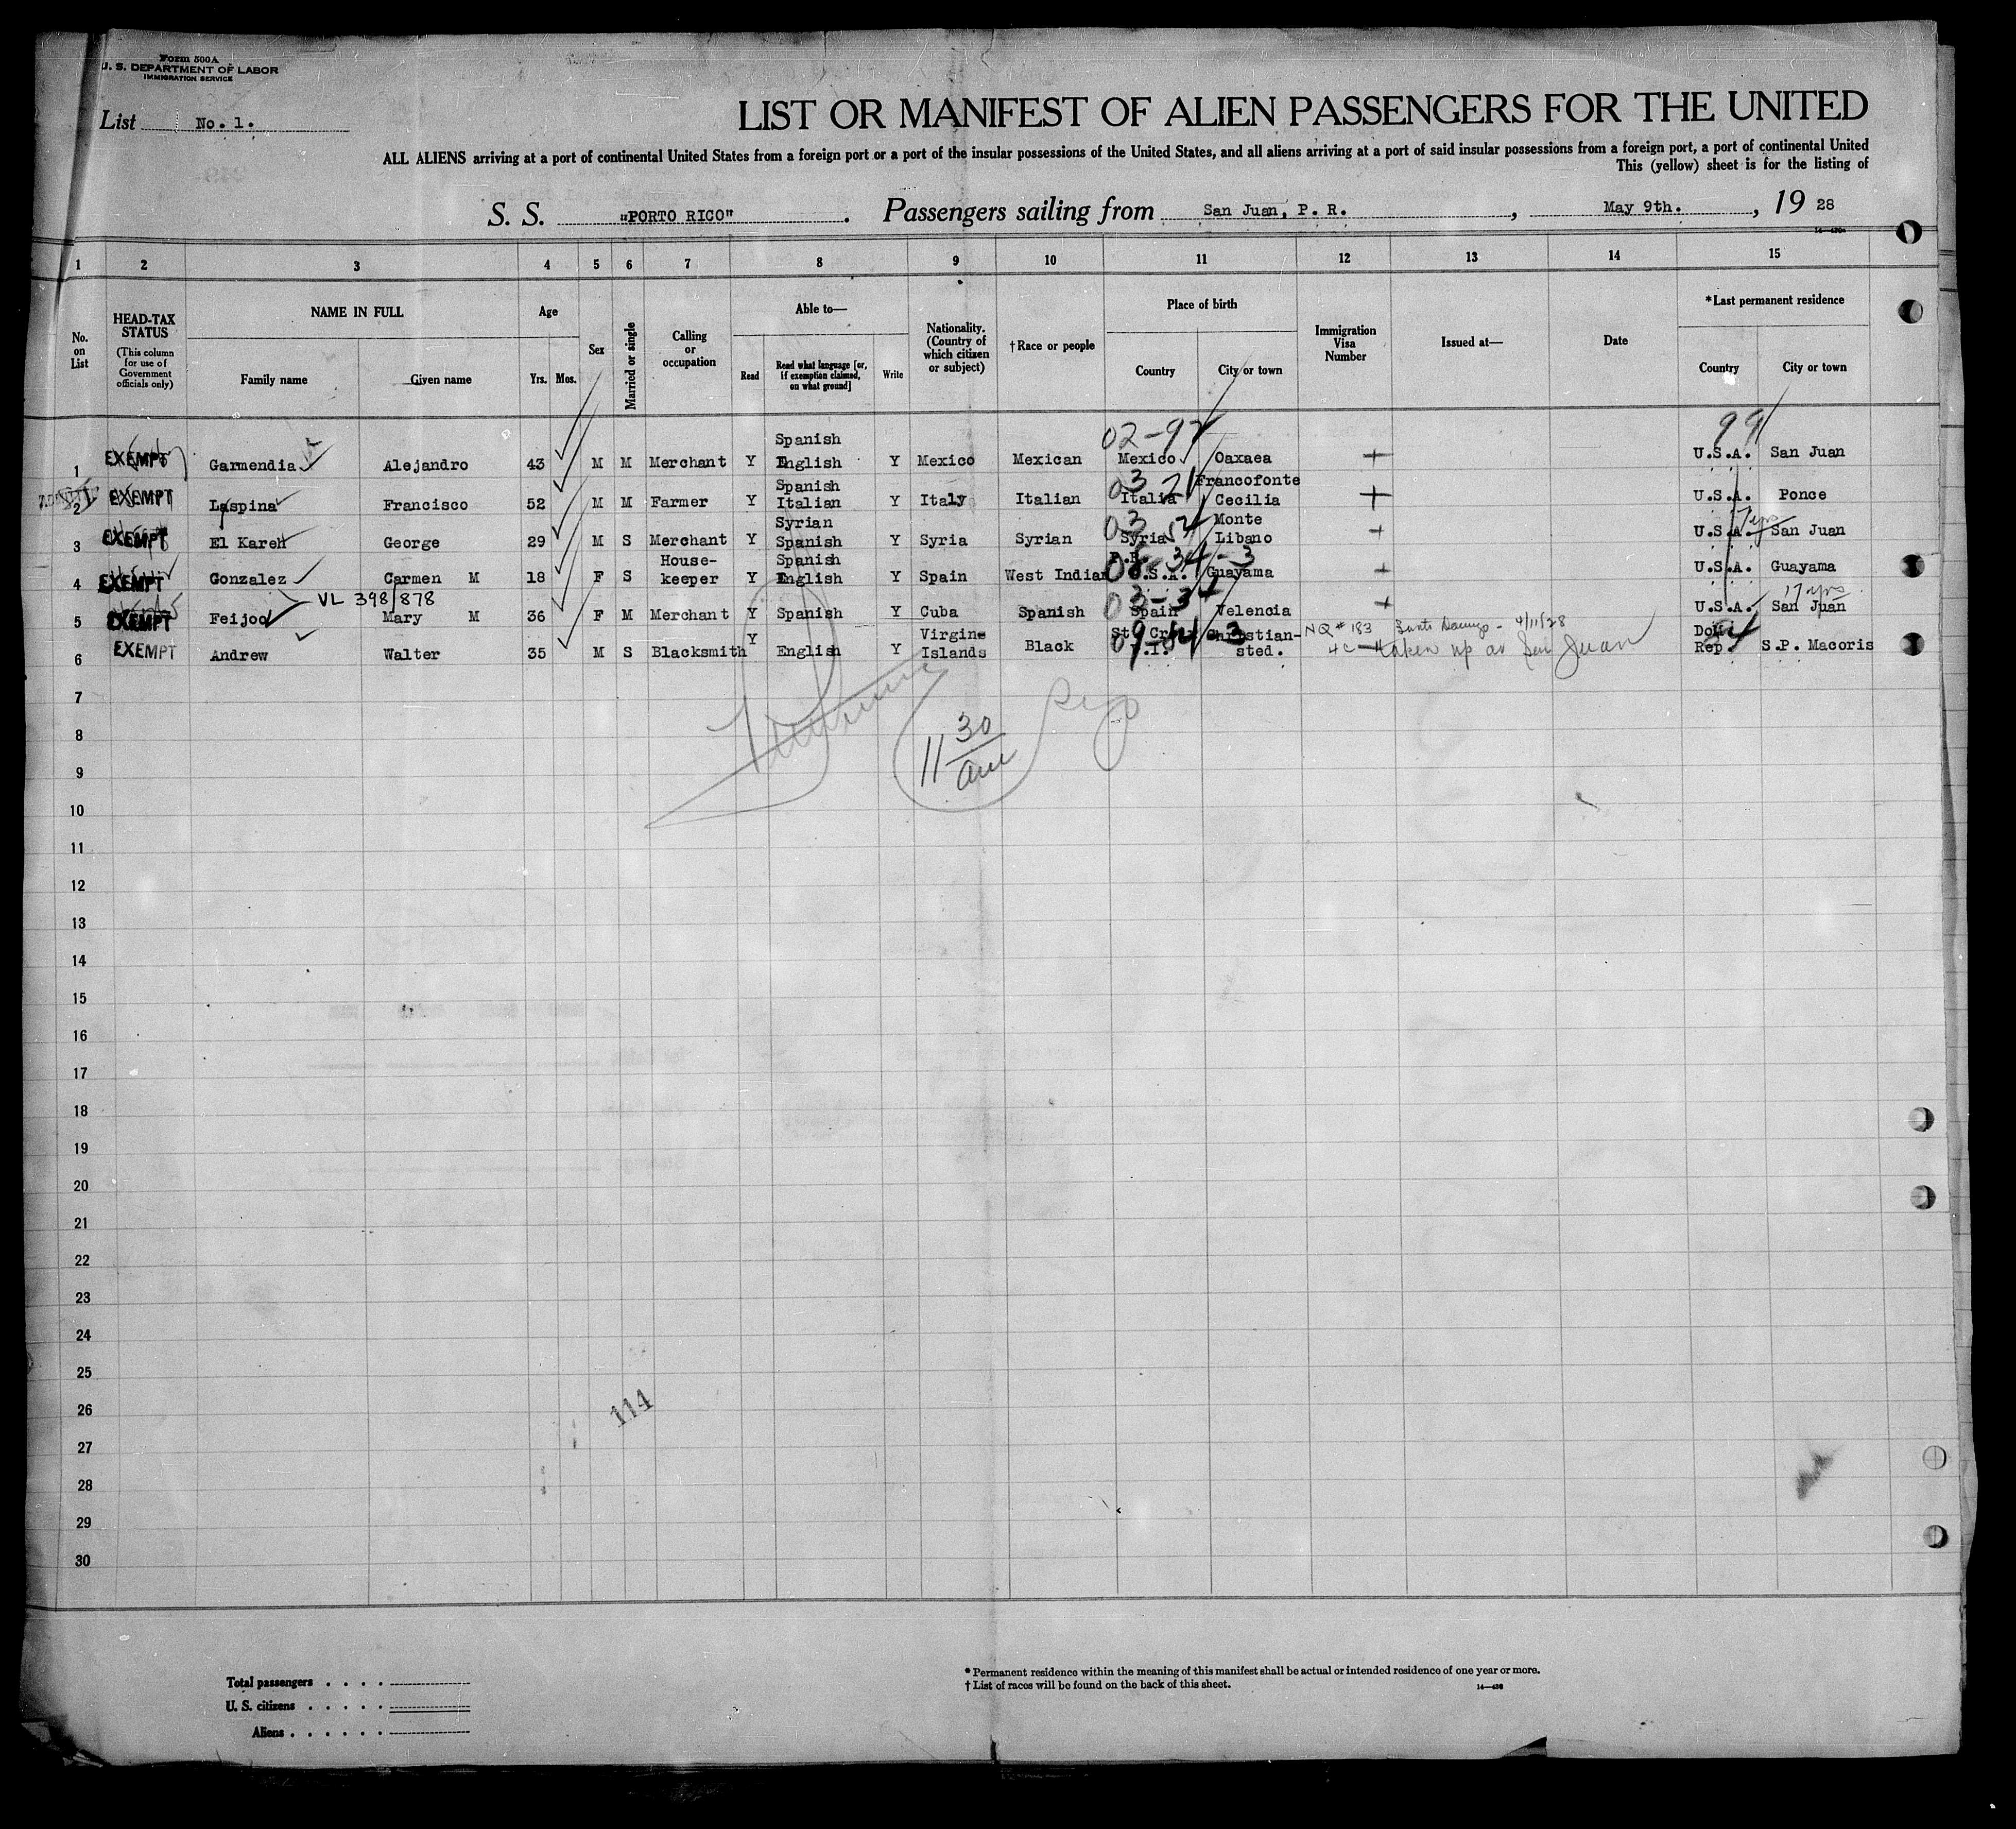 Form 500A
U. S. DEPARTMENT OF LABOR
IMMIGRATION SERVICE
List No. 1.
LIST OR MANIFEST OF ALIEN PASSENGERS FOR THE UNITED
ALL ALIENS arriving at a port of continental United States from a foreign port or a port of the insular possessions of the United States, and all aliens arriving at a port of said insular possessions from a foreign port, a port of continental United
This (yellow) sheet is for the listing of
S. S. "PORTO RICO". Passengers sailing from San Juan, P. R., May 9th., 19 28
1 2 3 4 5 6 7 8 9 10 11 12 13 14 15
No. on List
HEAD-TAX STATUS (This column for use of Government officials only)
NAME IN FULL
Family name Given name
Age
Yrs. Mos.
Sex
Married or single
Calling or occupation
Able to—
Read
Read what language [or, if exemption claimed, on what ground]
Write
Nationality. (Country of which citizen or subject)
†Race or people
Place of birth
Country City or town
Immigration Visa Number
Issued at—
Date
*Last permanent residence
Country City or town
02-92 99
1 EXEMPT Garmendia Alejandro 43 M M Merchant Y Spanish English Y Mexico Mexican Mexico Oaxaea U.S.A. San Juan
2 EXEMPT Laspina Francisco 52 M M Farmer Y Spanish Italian Y Italy Italian Italia Francofonte Cecilia U.S.A. Ponce
3 EXEMPT El Kareh George 29 M S Merchant Y Syrian Spanish Y Syria Syrian Syria Monte Libano U.S.A. 7 yrs San Juan
4 EXEMPT Gonzalez Carmen M 18 F S House-keeper Y Spanish English Y Spain West Indian P.R. U.S.A. Guayama U.S.A. Guayama
VL 398/878
5 EXEMPT Feijoo Mary M 36 F M Merchant Y Spanish Y Cuba Spanish Spain Velencia U.S.A. 17 yrs San Juan
6 EXEMPT Andrew Walter 35 M S Blacksmith Y English Y Virgin Islands Black St. Croix V.I. Christian-sted. NQ # 183 Santo Domingo - 4/11/28 Dom. Rep. S.P. Macoris
taken up at San Juan
7
8
11 30 am
9
10
11
12
13
14
15
16
17
18
19
20
21
22
23
24
25
26
114
27
28
29
30
Total passengers . . . .
U. S. citizens . . . . .
Aliens . . . . . .
* Permanent residence within the meaning of this manifest shall be actual or intended residence of one year or more.
† List of races will be found on the back of this sheet.